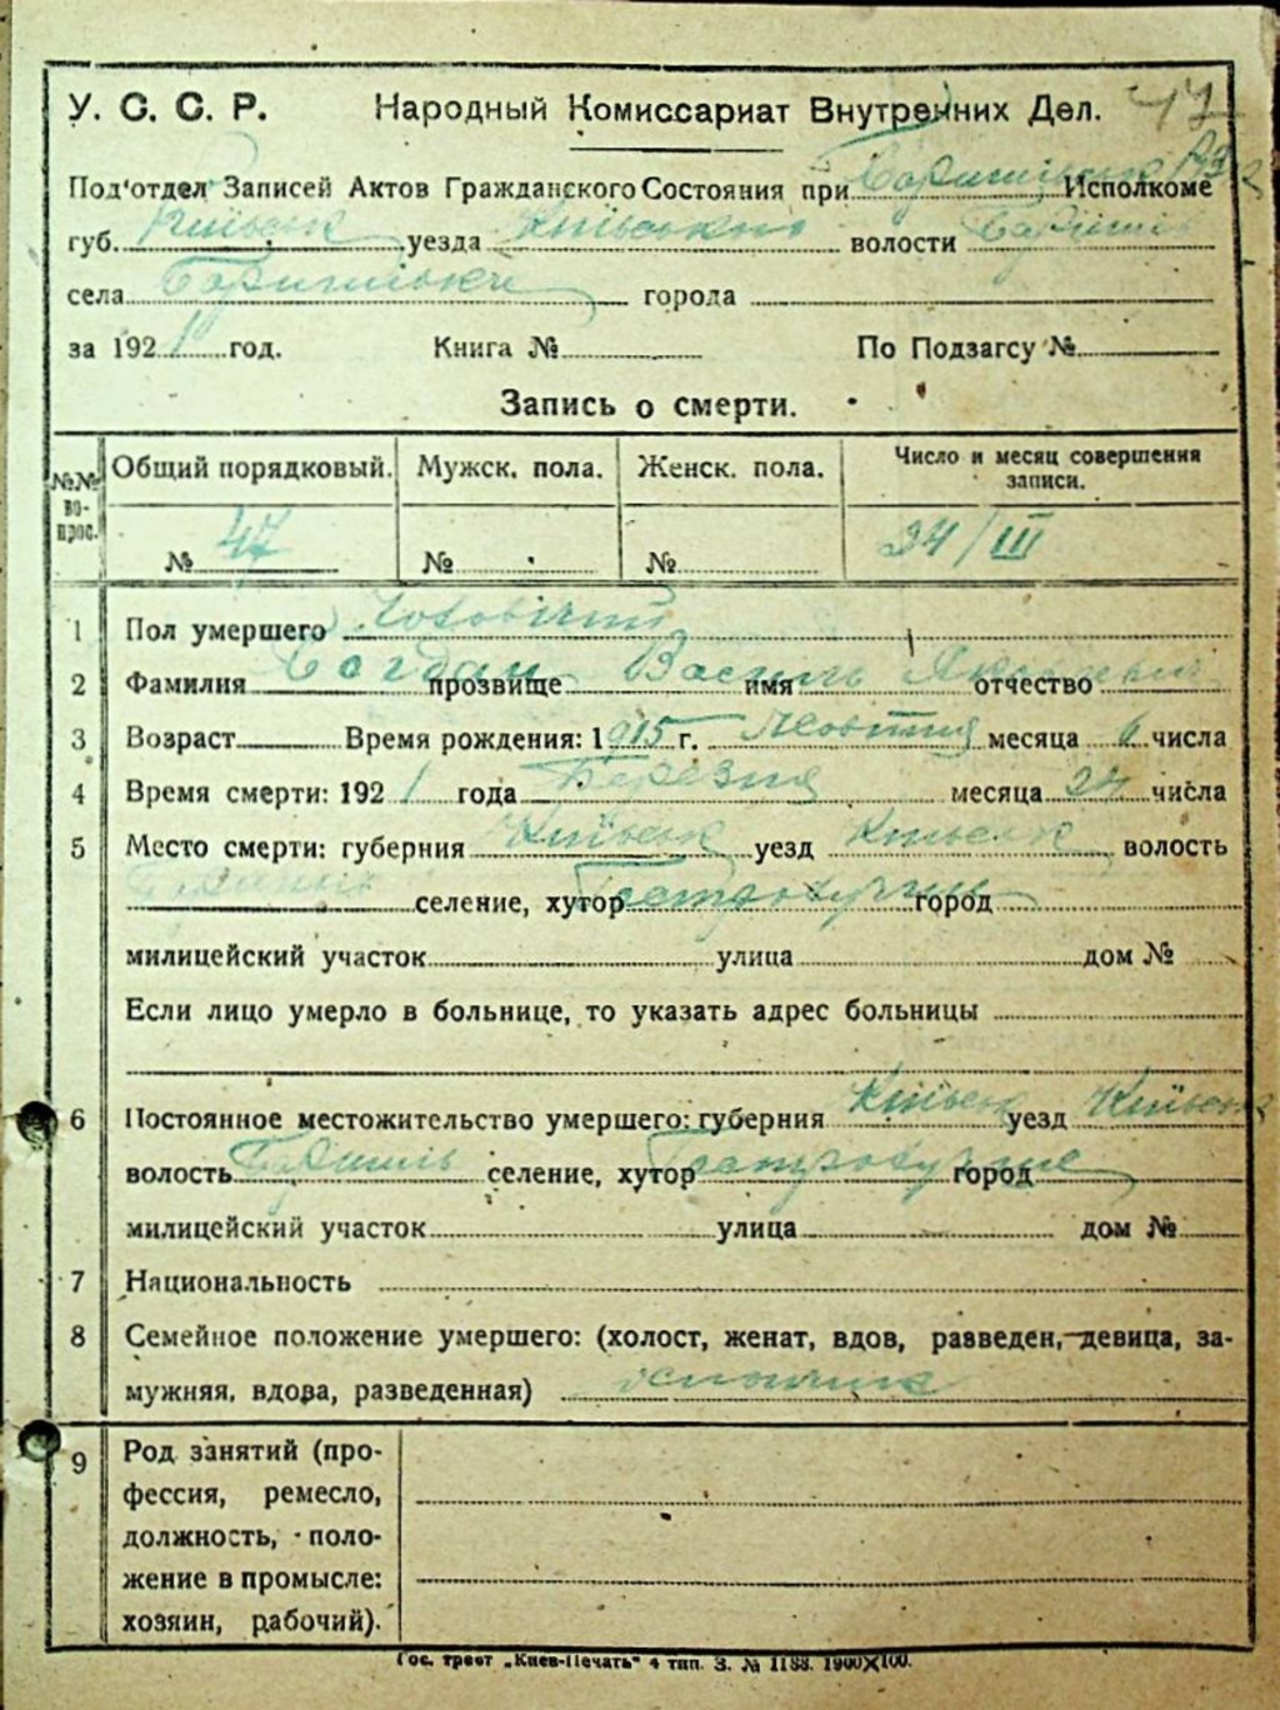 У. С. С. Р. Народный Комиссариат Внутренних Дел. 47
Под'отдел Записей Актов Гражданского Состояния при Исполкоме
губ. Київськ уезда Київського волости Баришів
села Баришівки города
за 1921 год. Книга № По Подзагсу №
Запись о смерти.
№№ вопрос. Общий порядковый. Мужск. пола. Женск. пола. Число и месяц совершения записи.
№ 47 № № 24/III
1 Пол умершего Чоловічий
2 Фамилия Богдан прозвище Василь имя отчество
3 Возраст Время рождения: 1915 г. Жовтня месяца 6 числа
4 Время смерти: 1921 года Березня месяца 24 числа
5 Место смерти: губерния Київськ уезд Київськ волость
селение, хутор город
милицейский участок улица дом №
Если лицо умерло в больнице, то указать адрес больницы
6 Постоянное местожительство умершего: губерния Київськ уезд Київськ
волость Баришів селение, хутор город
милицейский участок улица дом №
7 Национальность
8 Семейное положение умершего: (холост, женат, вдов, разведен, девица, за-
мужняя, вдова, разведенная)
9 Род занятий (про-
фессия, ремесло,
должность, поло-
жение в промысле:
хозяин, рабочий).
Гос. трест „Киев-Печать“ 4 тип. З. № 1188. 1900X100.